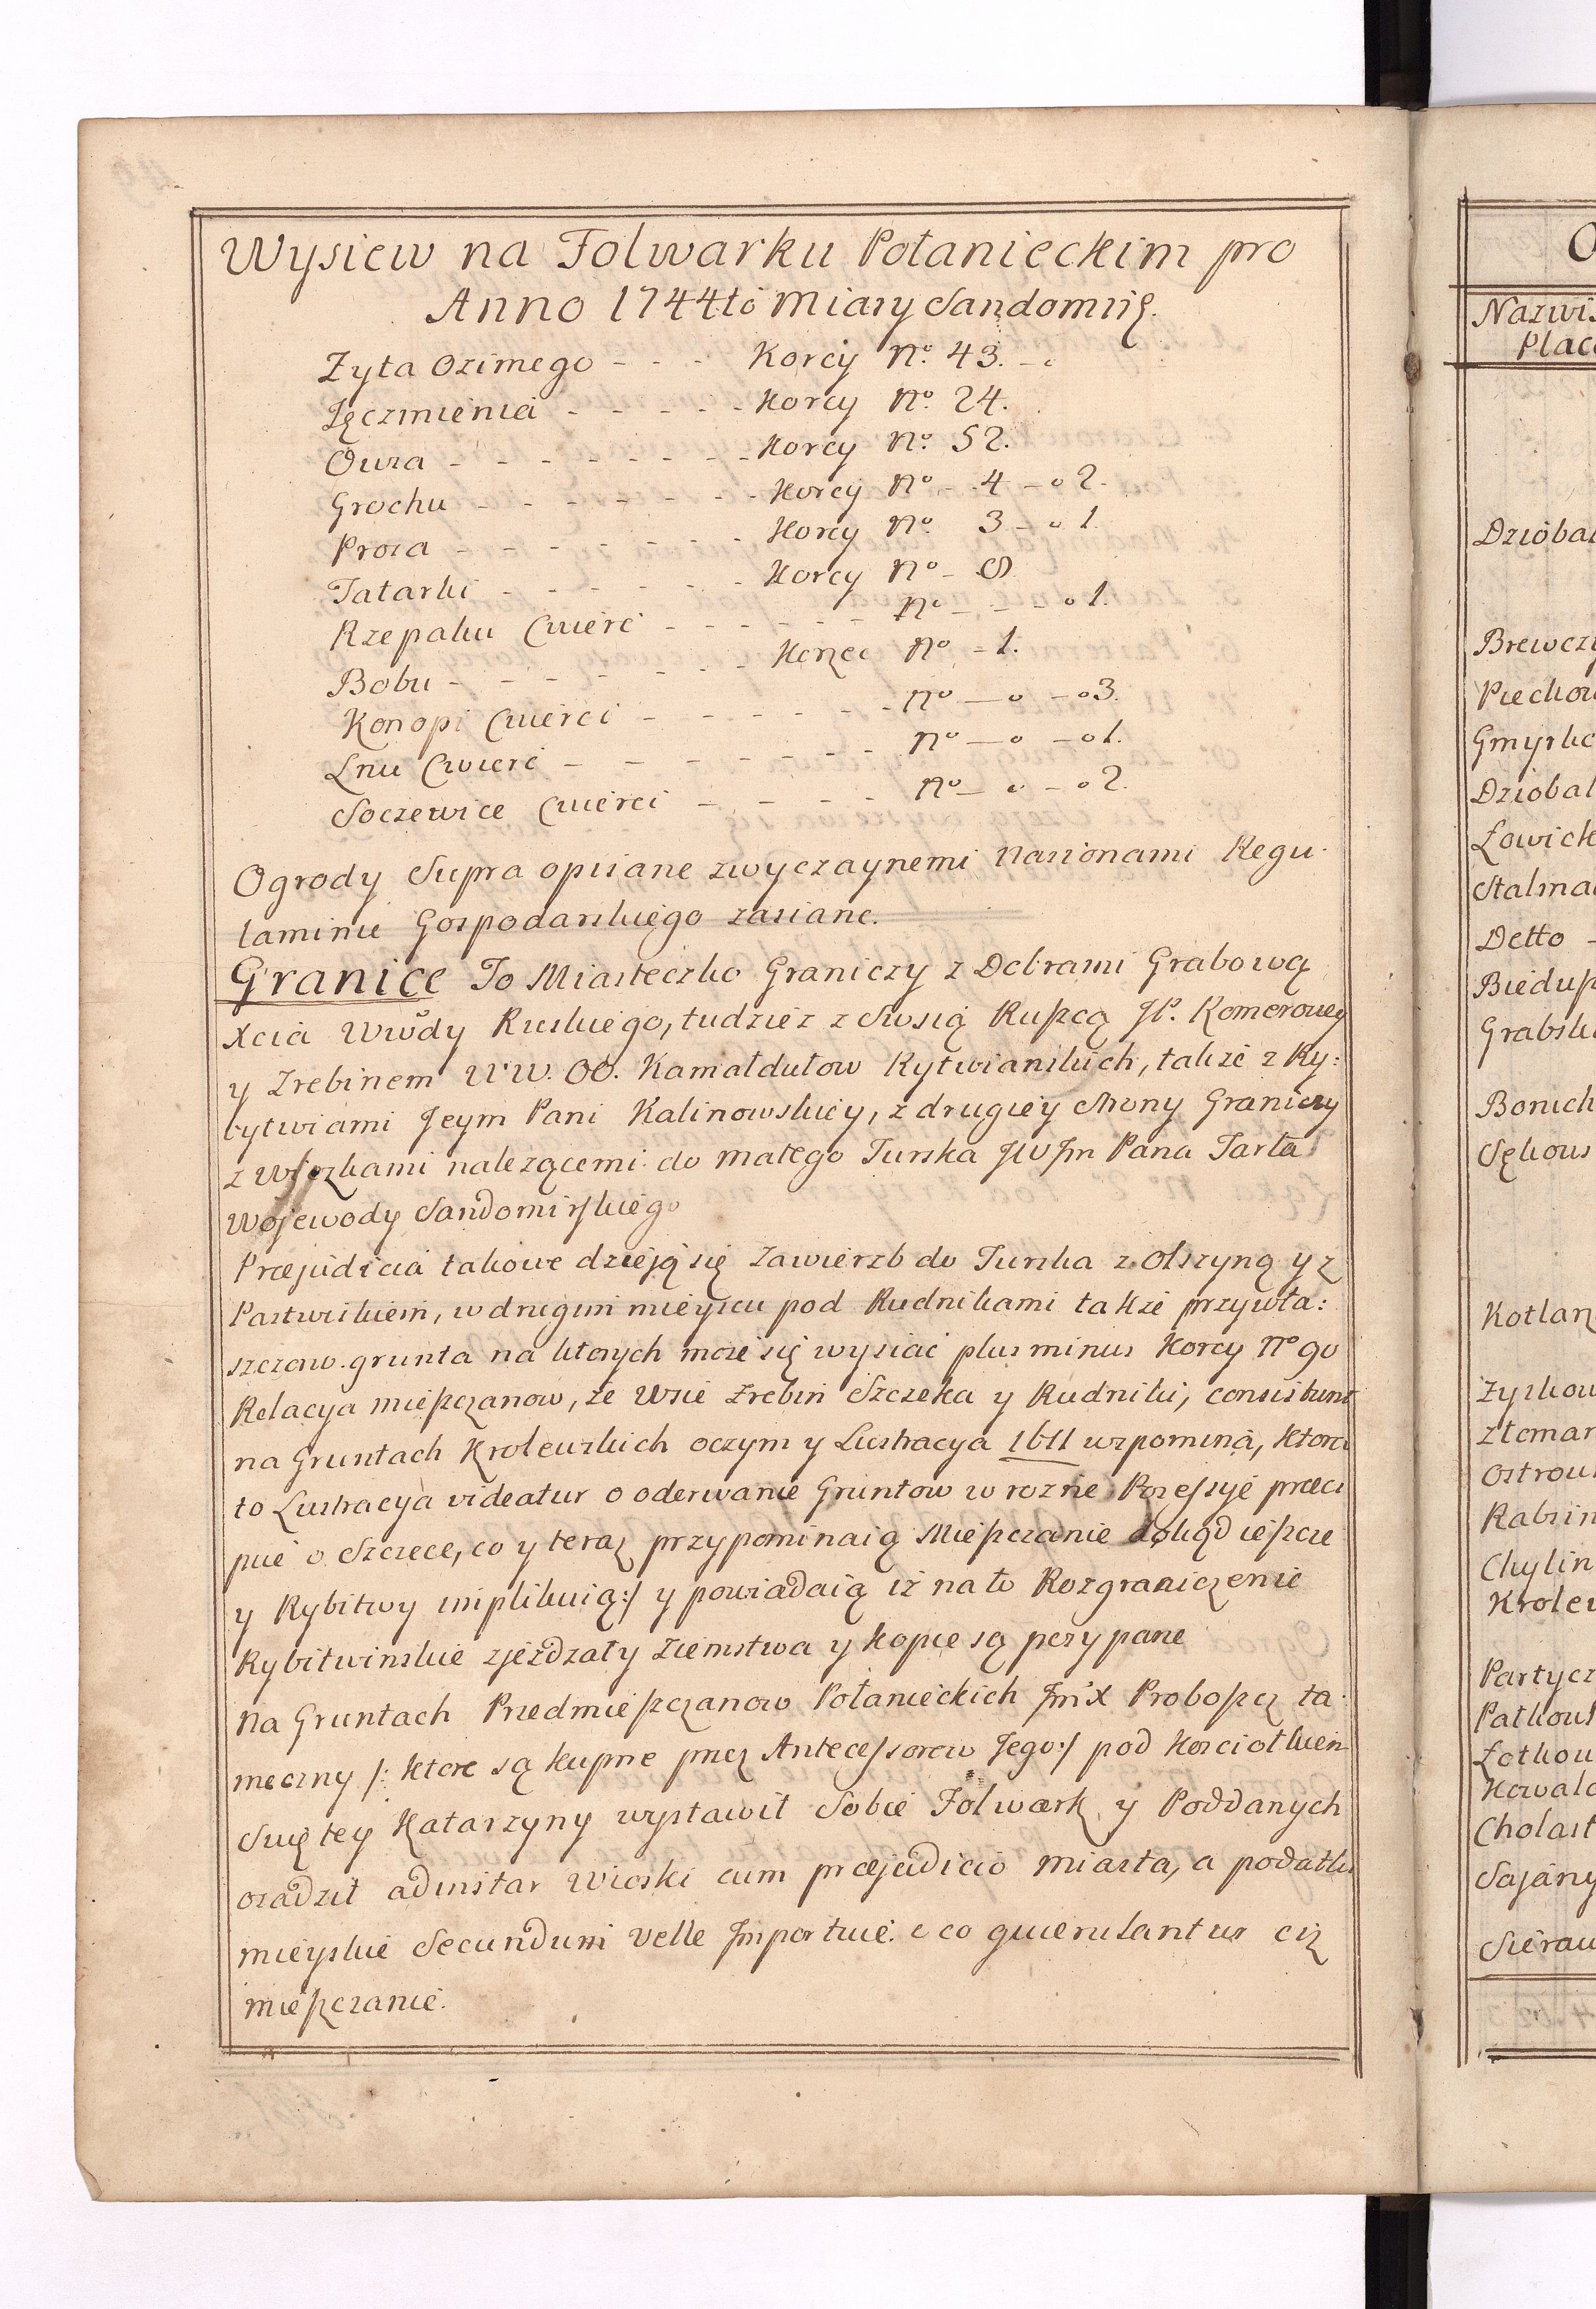 Wysiew na Folwarku Połanieckim pro
Anno 1744to Miary Sandomirẓ.
Zyta Ozimego - - - Korcy No. 43. - o
Jęczmienia - - - - - Korcy No. 24.
Owsa - - - - - - - - Korcy No. 52.
Grochu - - - - - - - Korcy No - 4 - o 2.
Prosa - - - - - - - Korcy No. 3 - o 1.
Tatarki - - - - - - Korcy No - 8
Rzepaku Cwierć - - - - - - No - - - o 1.
Bobu - - - - - - - Korzec No - 1.
Konopi Cwierci - - - - - - No - o - o 3.
Lnu Cwierć - - - - - - - No - o - o 1.
Soczewice Cwierci - - - - No - o - o 2.
Ogrody Supra opisane zwyczaynemi Nasionami Regu-
laminu Gospodarskiego zasiane.
Granice To Miasteczko Graniczy z Dobrami Grabową
Xcia Wwody Ruskiego, tudziez z Wsią Rupczą JP. Komorowey
y Zrebinem WW. OO. Kamałdułow Rytwianskich, takze z Ry:
bytwiami Jeym Pani Kalinowskiey, z drugiey strony Graniczy
z Wioskami nalezącemi do małego Turska JW Jm Pana Tarła
Wojewody Sandomirskiego
Præjudicia takowe dzieją się Zawierzb do Turska z Olszyną y z
Pastwiskiem, w drugim mieyscu pod Rudnikami także przywła:
szczaw. grunta na ktorych może się wysiać plus minus Korcy No 90
Relacya mieszczanow, że Wsie Zrebin Szczeka y Rudniki, consistunt
na Gruntach Krolewskich oczym y Lustracya 1611 wspomina, ktora
to Lustracya videatur o oderwanie Gruntow w rozne Possessye præci
pue o Szczece, co y teraz przypominaią Mieszczanie dokąd ieszcze
y Rybitwy implikuią:/ y powiadaią iż na to Rozgraniczenie
Rybitwinskie zjeżdzały Ziemstwa y Kopce są pozypane
Na Gruntach Przedmieszczanow Połanieckich Jm'X Proboszcz ta-
meczny /: ktore są kupne przez Antecessorow Jego:/ pod Kosciołkiem
Swiętey Katarzyny wystawił Sobie Folwark y Poddanych
osadził adinstar Wioski cum præjudicio Miasta, a podatki
mieyskie Secundum Velle Importuie. o co querulantur ciż
mieszczanie.
O
Nazwis
Plac
Dziobal
Brewczy
Piechow
Gmyrko
Dziobal
Ławick
Stalma
Detto -
Biedup
Grabsk
Bonick
Sękows
Kotlarz
Zyskow
Złomar
Ostrow
Rabsin
Chylin
Krolew
Partycz
Patkows
Łotkow
Kowalc
Cholast
Sajany
Sieraw